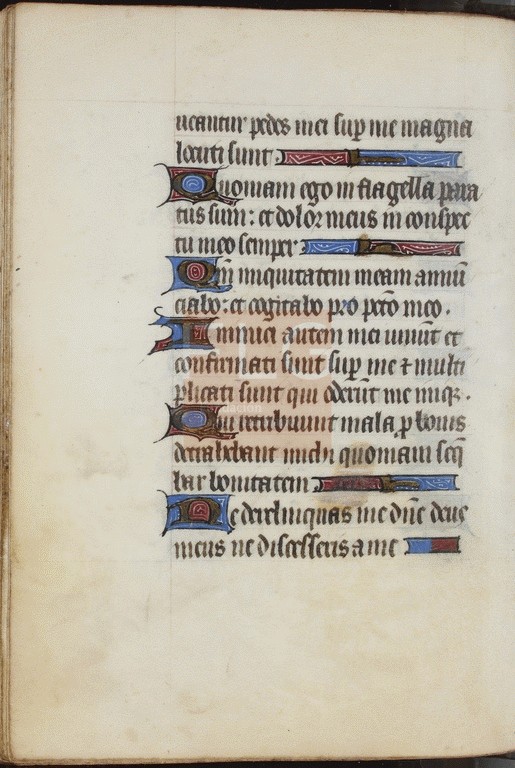 ueantur pedes mei sup me magna
locuti sunt
Quoniam ego in flagella para
tus sum: et dolor meus in conspec
tu meo semper
Qm iniquitatem meam annũ
ciabo: et cogitabo pro pctõ meo.
Inimici autem mei uiuũt et
confirmati sunt sup me ⁊ multi
plicati sunt qui oderũt me iniq̃.
Qui retribuunt mala p bonis
detrahebant michi quoniam seq̃
bar bonitatem
Ne derelinquas me dñe deus
meus ne discesseris a me
FLG